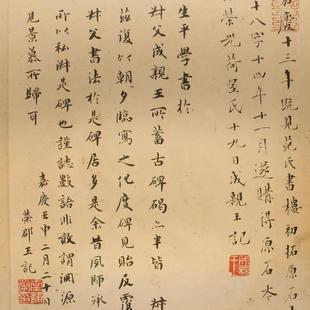 慶十三年既見范氏書樓初拓原石
十八字十四年十一月遂購得原石本
榮光荷屋氏十九日成親王記
生平學書於
叔父成親王所蓄古碑碣亦半皆叔
茲復以朝夕臨寫之化度碑見貽反覆
叔父書法於是碑居多是余昔夙師承
所以私淑是碑也謹誌數語非敢謂淵源
見景慕所歸耳
嘉慶壬申二月二十日
榮郡王記